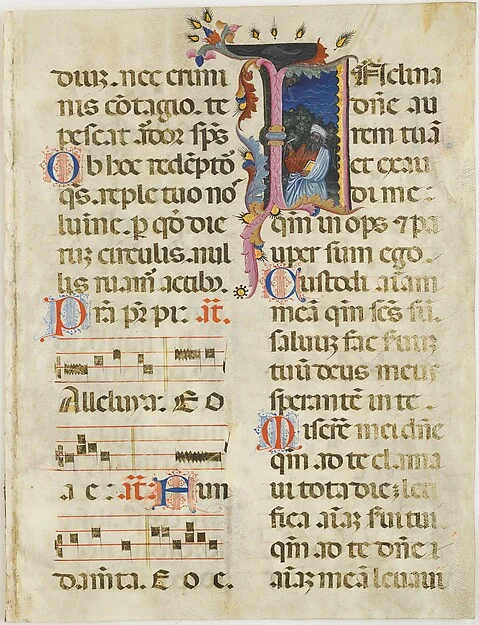 nec crimi
nis cōtagio. te
pescat ardor sp̄s
Ob hoc redēptō
q̄s. reple tuo no
lumine. p q̄ die
ruz circulis. nul
lis ruam̄ actib⁊.
Prā pr̄ pi: añ.
Alleluya. E O
a e: añ: Aun
damīta. E O C.
Inclina
dn̄e au
rem tuā
et exau
di me:
qm̄ inops ⁊ pa
uper sum ego.
Custodi aīam
meā qm̄ scs̄ su.
saluuz fac seruuz
tuū deus meus
sperantē in te
Miserē mei dn̄e
qm̄ ad te clama
ui tota die: leti
fica aīaz serui tui
qm̄ ad te dn̄e
aīaz meā leuaui